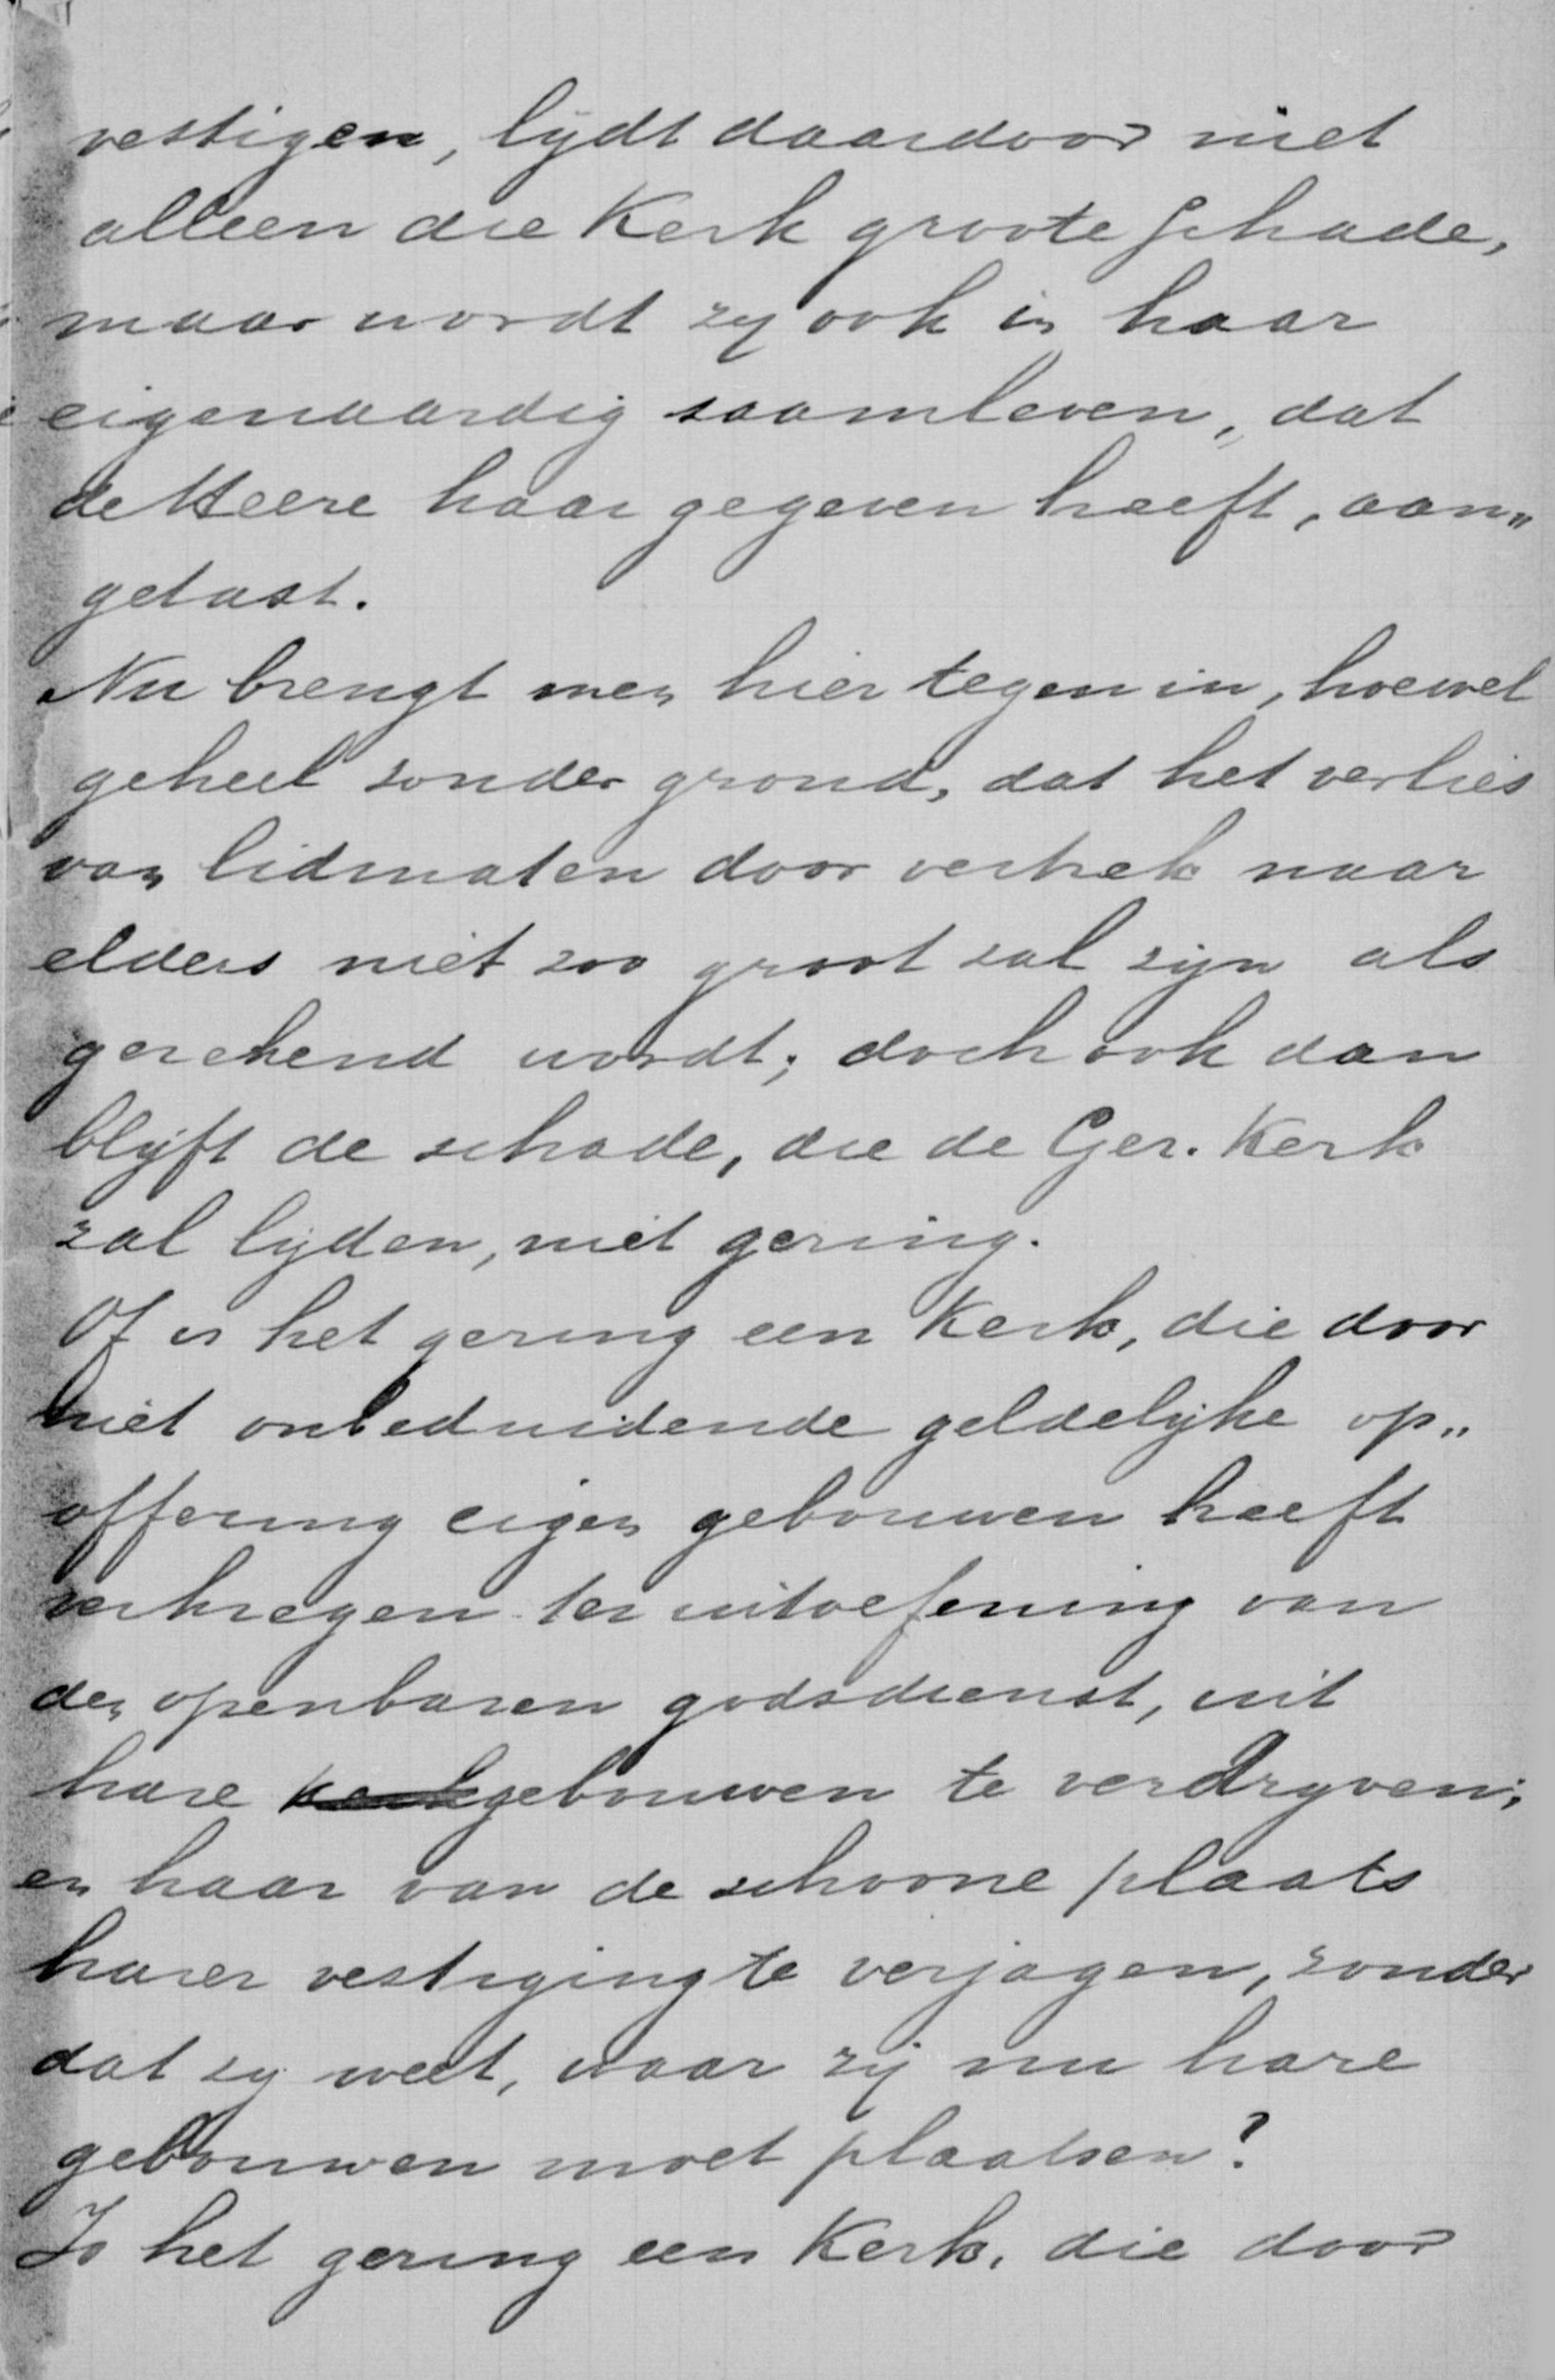 vestigen, lydt daardoor niet
alleen die Kerk groote schade,
maar wordt zy ook in haar
eigenaardig saamleven, dat
de Heere haar gegeven heeft, aan„
getast.
Nu brengt men hier tegen in, hoewel
geheel zonder grond, dat het verlies
van lidmaten door vertrek naar
elders niet zoo groot zal zijn als
gerekend wordt; doch ook dan
blijft de schade, die de Ger. Kerk
zal lijden, niet gering.
Of is het gering een Kerk, die door
niet onbeduidende geldelijke op„
offering eigen gebouwen heeft
verkregen ter uitoefening van
den openbaren godsdienst, uit
hare kerkgebouwen te verdryven;
en haar van de schoone plaats
harer vestiging te verjagen, zonder
dat zy weet, waar zij nu hare
gebouwen moet plaatsen?
Is het gering een Kerk, die door